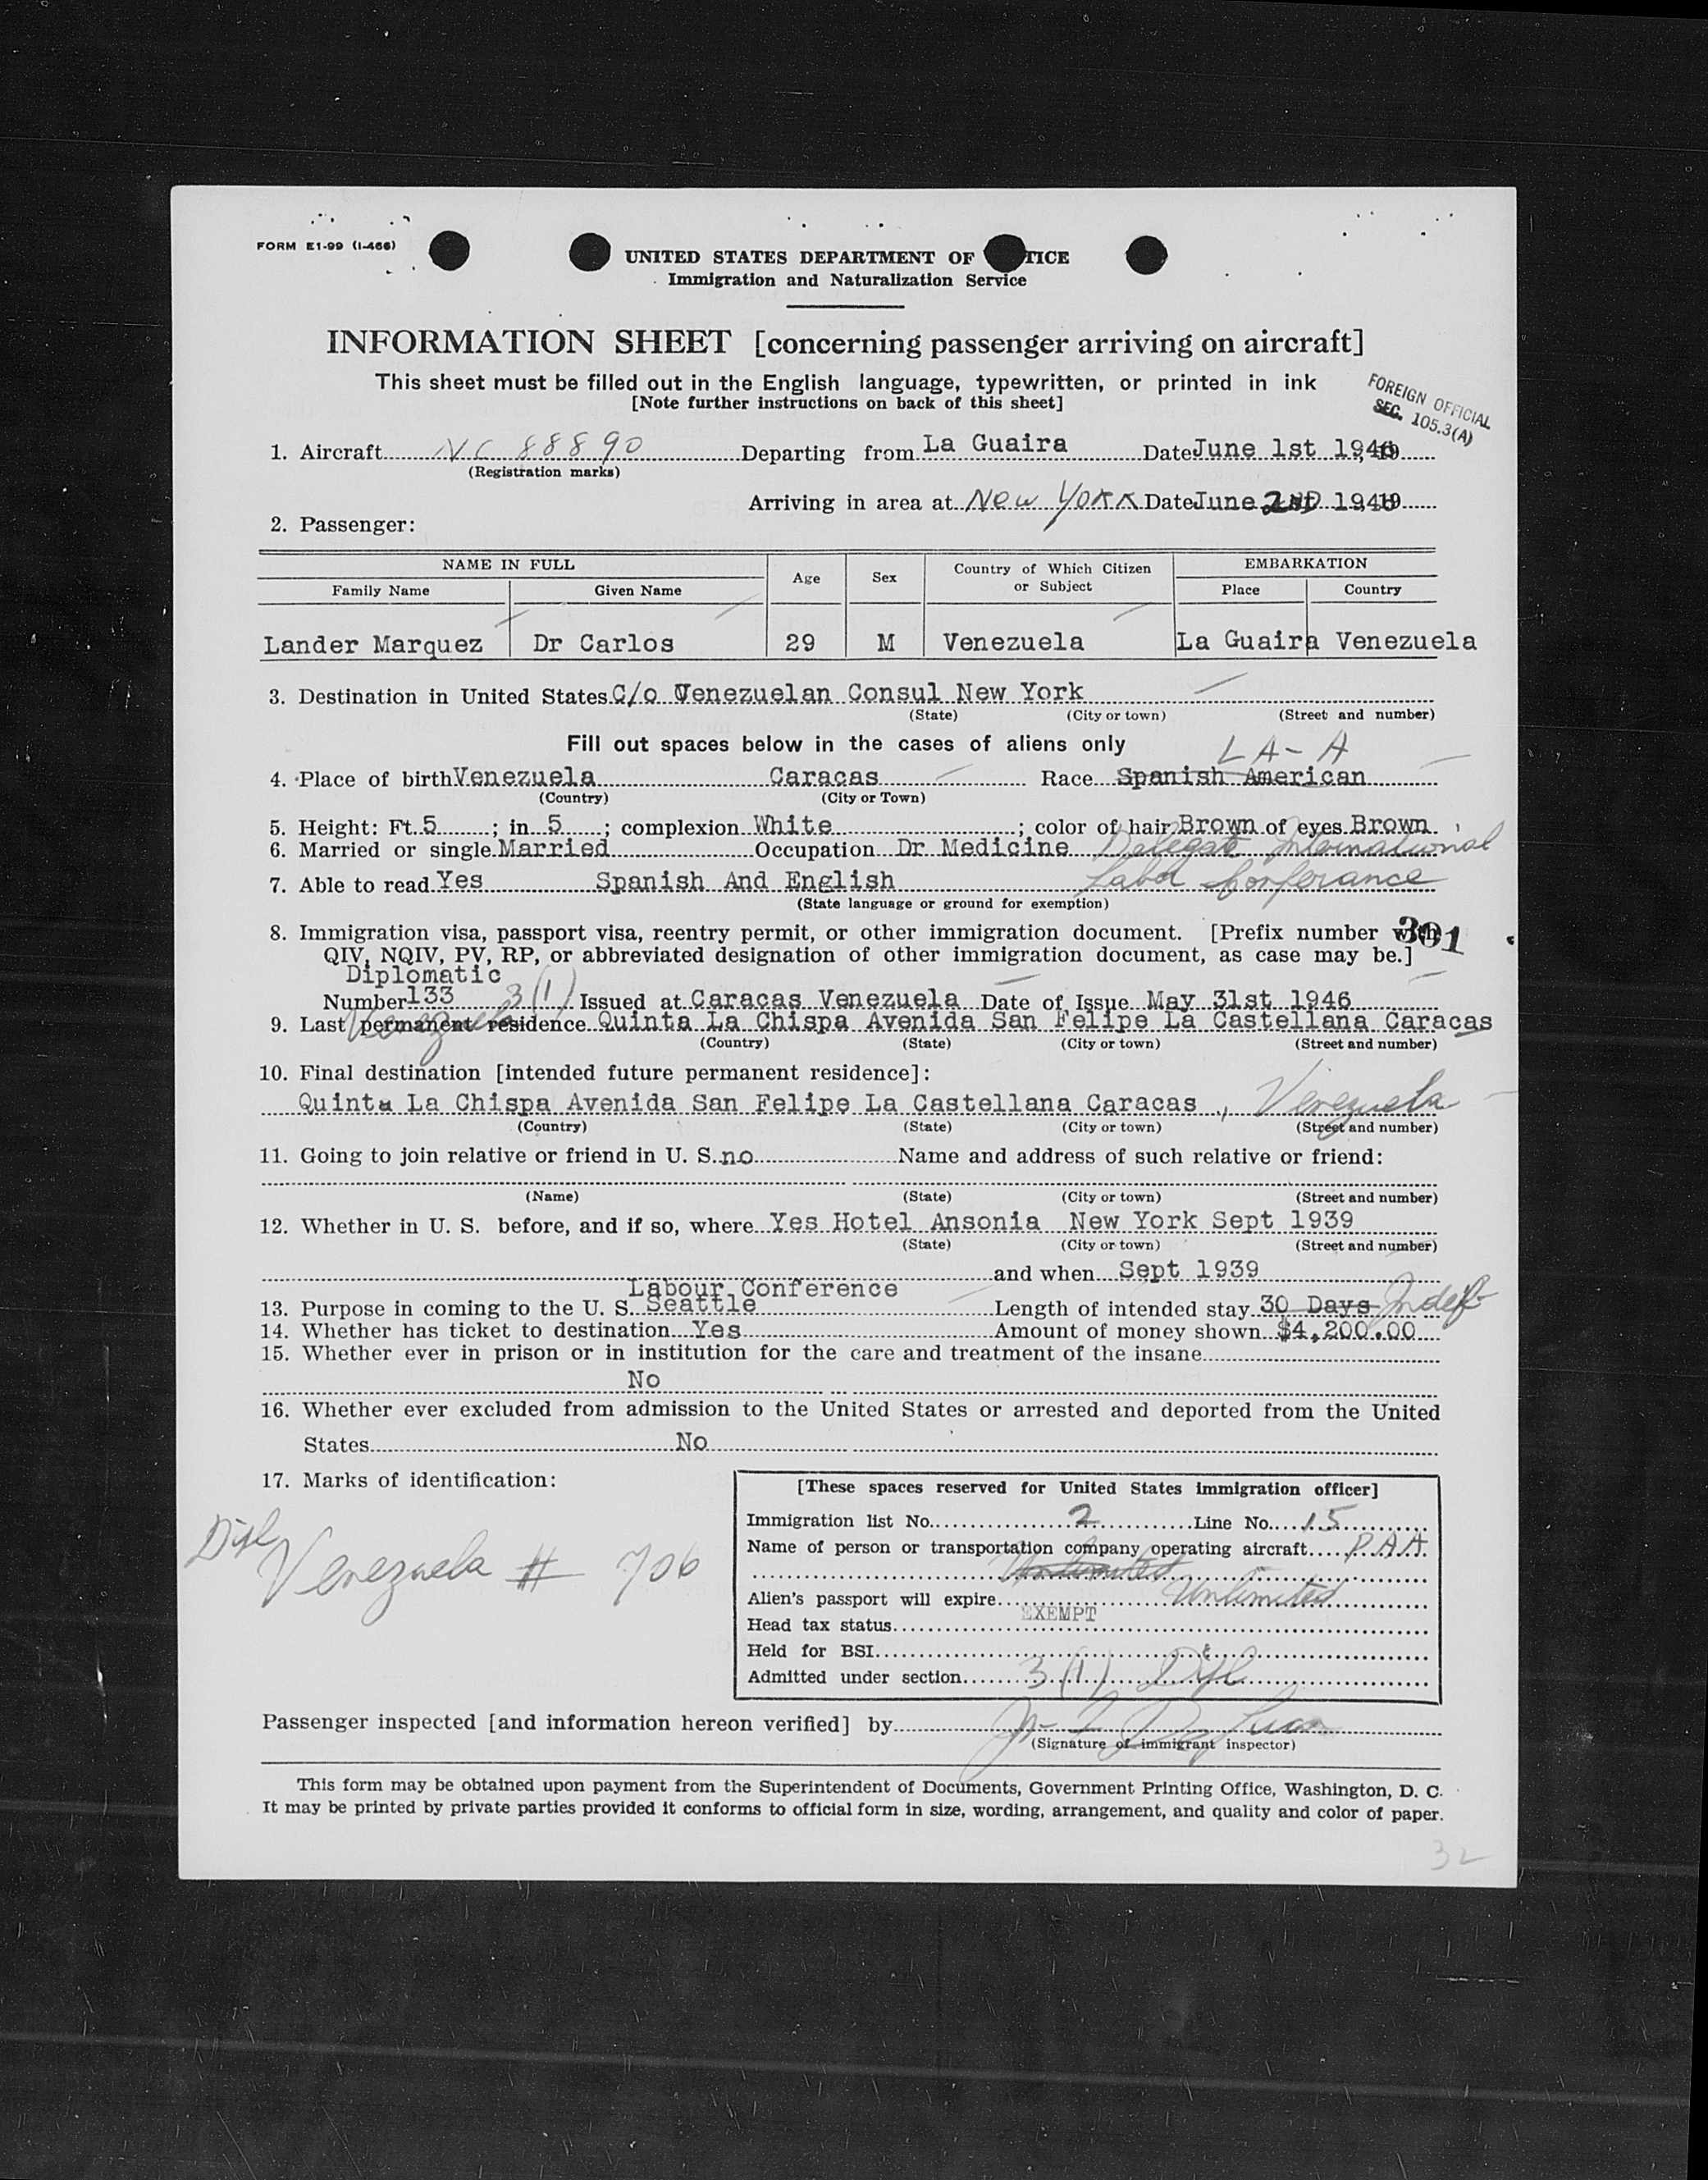 FORM E1-99 (I-466)
UNITED STATES DEPARTMENT OF TICE
Immigration and Naturalization Service
INFORMATION SHEET [concerning passenger arriving on aircraft]
This sheet must be filled out in the English language, typewritten, or printed in ink
[Note further instructions on back of this sheet]
FOREIGN OFFICIAL
SEC. 105.3(A)
1. Aircraft NC 88890 Departing from La Guaira Date June 1st 1946, 19
(Registration marks)
Arriving in area at New York Date June 2ND 1946, 19
2. Passenger:
NAME IN FULL Age Sex Country of Which Citizen or Subject EMBARKATION
Family Name Given Name Place Country
Lander Marquez Dr Carlos 29 M Venezuela La Guaira Venezuela
3. Destination in United States C/o Venezuelan Consul New York
(State) (City or town) (Street and number)
Fill out spaces below in the cases of aliens only
LA-A
4. Place of birth Venezuela Caracas Race Spanish American
(Country) (City or Town)
5. Height: Ft. 5 ; in. 5 ; complexion White ; color of hair Brown of eyes Brown
6. Married or single Married Occupation Dr Medicine Delegate International
7. Able to read Yes Spanish And English Labor Conferance
(State language or ground for exemption)
8. Immigration visa, passport visa, reentry permit, or other immigration document. [Prefix number with 301
QIV, NQIV, PV, RP, or abbreviated designation of other immigration document, as case may be.]
Diplomatic
Number 133 3(1) Issued at Caracas Venezuela Date of Issue May 31st 1946
9. Last permanent residence Quinta La Chispa Avenida San Felipe La Castellana Caracas
Venezuela
(Country) (State) (City or town) (Street and number)
10. Final destination [intended future permanent residence]:
Quinta La Chispa Avenida San Felipe La Castellana Caracas , Venezuela
(Country) (State) (City or town) (Street and number)
11. Going to join relative or friend in U. S. no Name and address of such relative or friend:
(Name) (State) (City or town) (Street and number)
12. Whether in U. S. before, and if so, where Yes Hotel Ansonia New York Sept 1939
(State) (City or town) (Street and number)
and when Sept 1939
Labour Conference
13. Purpose in coming to the U. S. Seattle Length of intended stay 30 Days Indef
14. Whether has ticket to destination Yes Amount of money shown $4,200.00
15. Whether ever in prison or in institution for the care and treatment of the insane
No
16. Whether ever excluded from admission to the United States or arrested and deported from the United
States No
17. Marks of identification:
Dipl
Venezuela # 706
[These spaces reserved for United States immigration officer]
Immigration list No. 2 Line No. 15
Name of person or transportation company operating aircraft P.A.A.
Unlimited
Alien's passport will expire Unlimited
EXEMPT
Head tax status
Held for BSI
Admitted under section 3(1) Dipl
Passenger inspected [and information hereon verified] by
(Signature of immigrant inspector)
This form may be obtained upon payment from the Superintendent of Documents, Government Printing Office, Washington, D. C.
It may be printed by private parties provided it conforms to official form in size, wording, arrangement, and quality and color of paper.
32